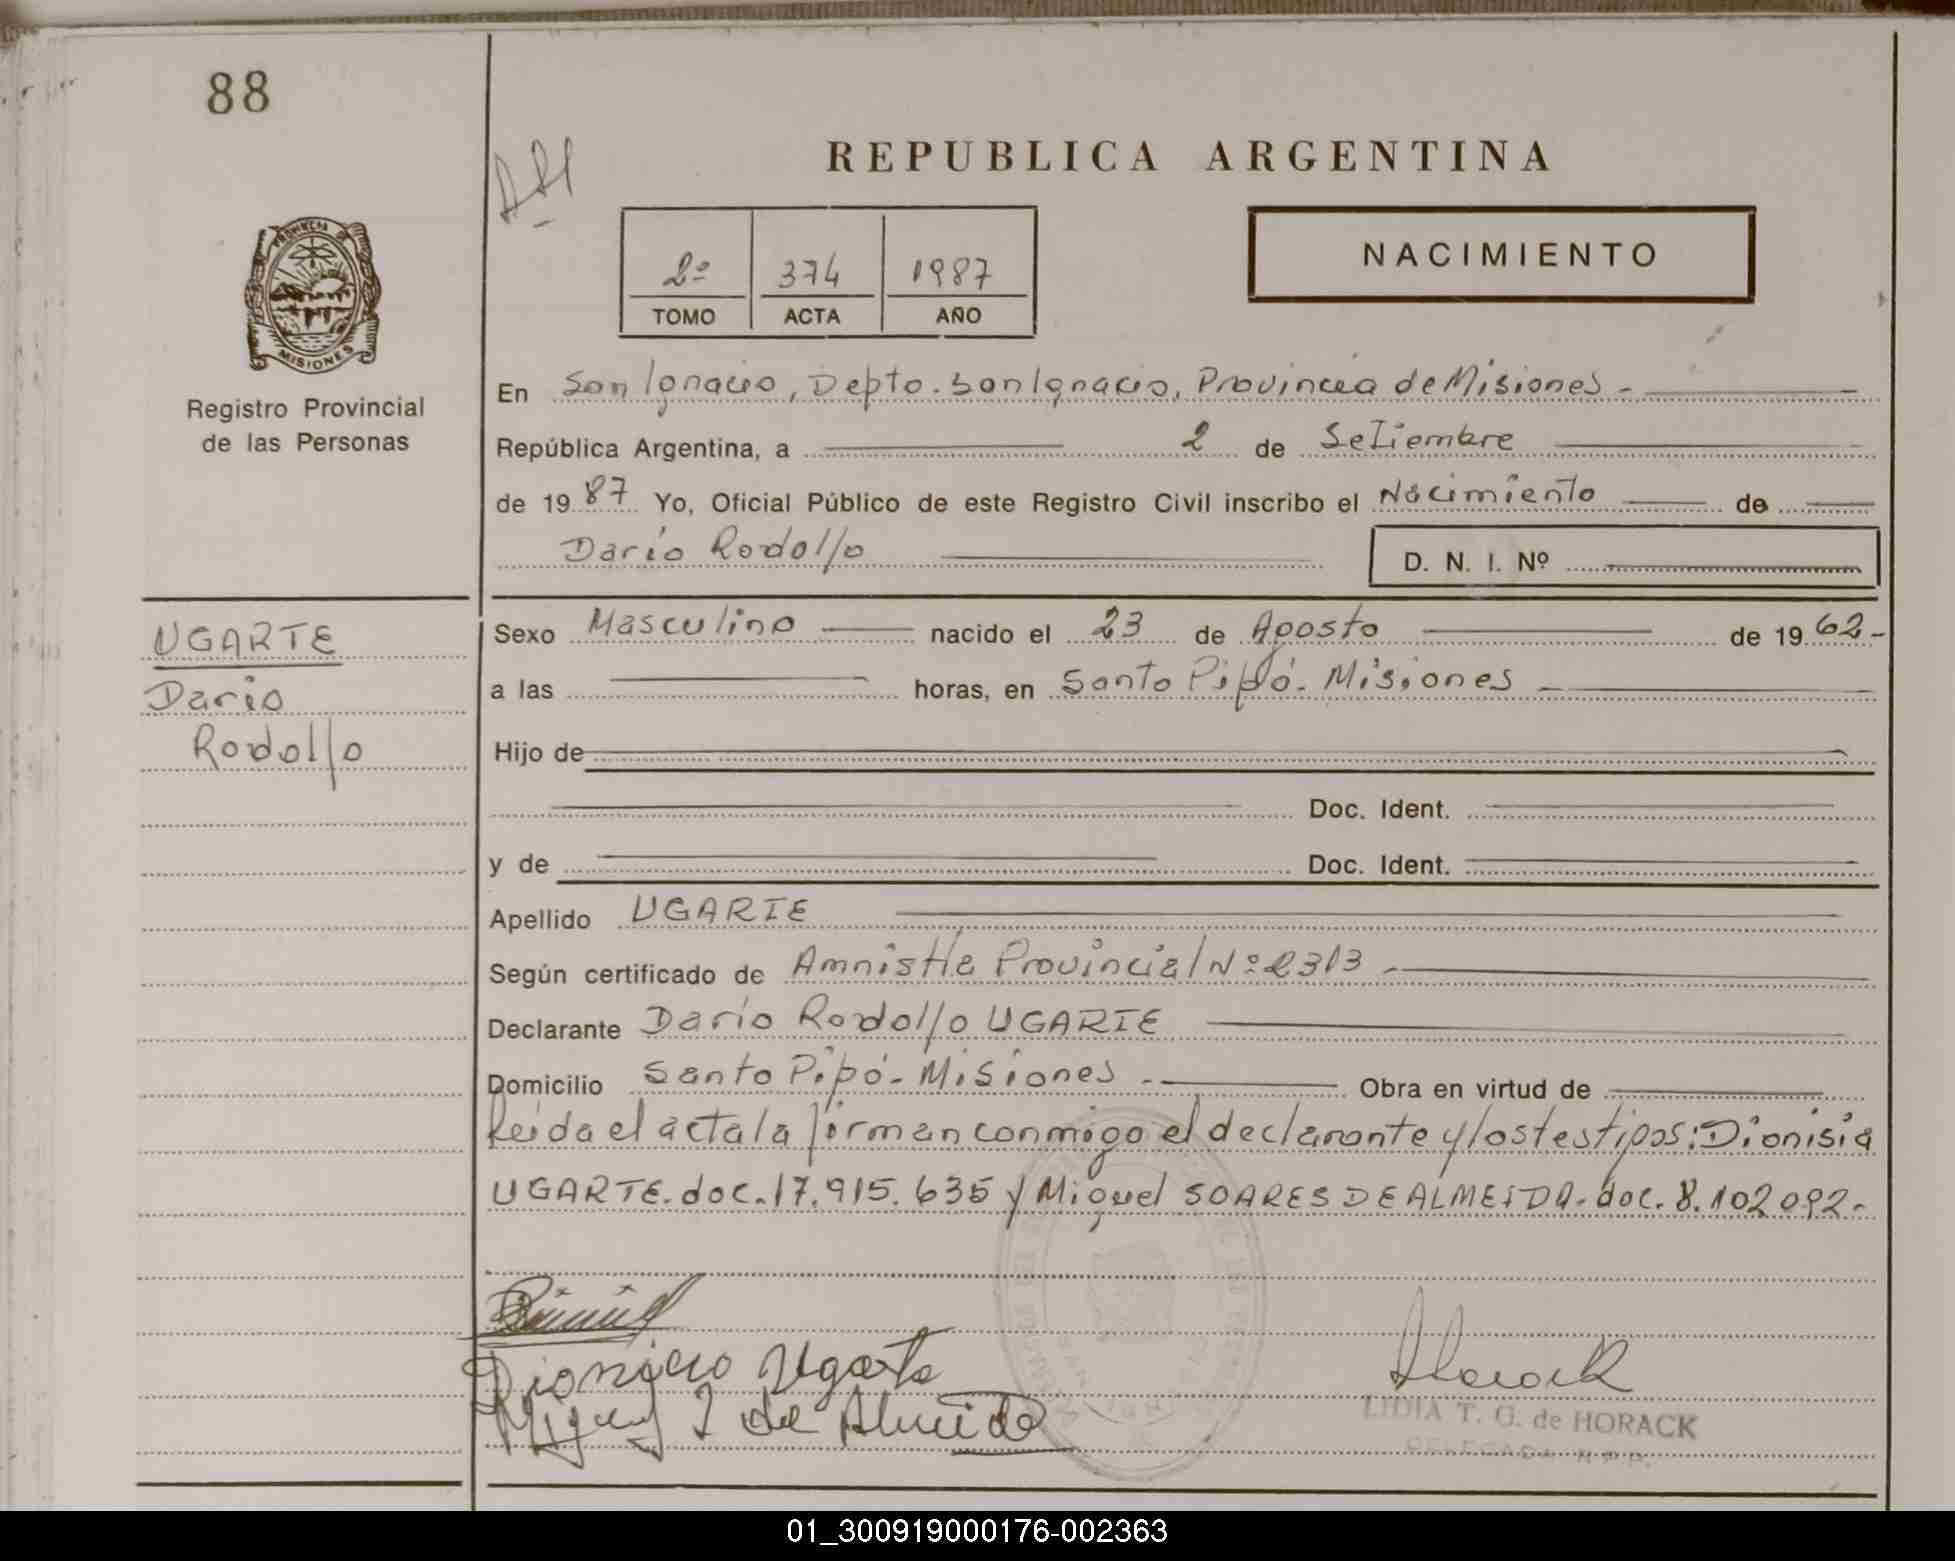 88
REPUBLICA ARGENTINA
NACIMIENTO
2º 374 1987
TOMO ACTA AÑO
PROVINCIA DE
MISIONES
Registro Provincial
de las Personas
En San Ignacio, Depto. San Ignacio, Provincia de Misiones -
República Argentina, a 2 de Setiembre
de 1987 Yo, Oficial Público de este Registro Civil inscribo el Nacimiento de
Darío Rodolfo D. N. I. Nº
UGARTE
Dario
Rodolfo
Sexo Masculino nacido el 23 de Agosto de 1962-
a las horas, en Santo Pipó. Misiones
Hijo de
Doc. Ident.
y de Doc. Ident.
Apellido UGARTE
Según certificado de Amnistía Provincial Nº 2313 -
Declarante Darío Rodolfo UGARTE
Domicilio Santo Pipó - Misiones - Obra en virtud de
Leída el acta la firman conmigo el declarante y los testigos: Dionisia
UGARTE. doc. 17.915.635 y Miguel SOARES DE ALMEIDA. doc. 8.102092-
Dionicio Ugarte
de Almeida
Horack
LIDIA T. G. de HORACK
DELEGADA R.P.P.
01_300919000176-002363